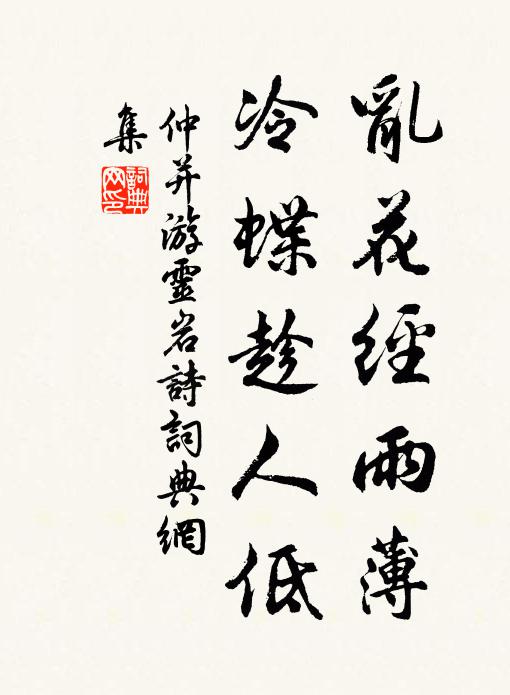 亂花經雨薄
冷蝶趁人低
仲并游靈岩詩詞典網
集
詞典网印